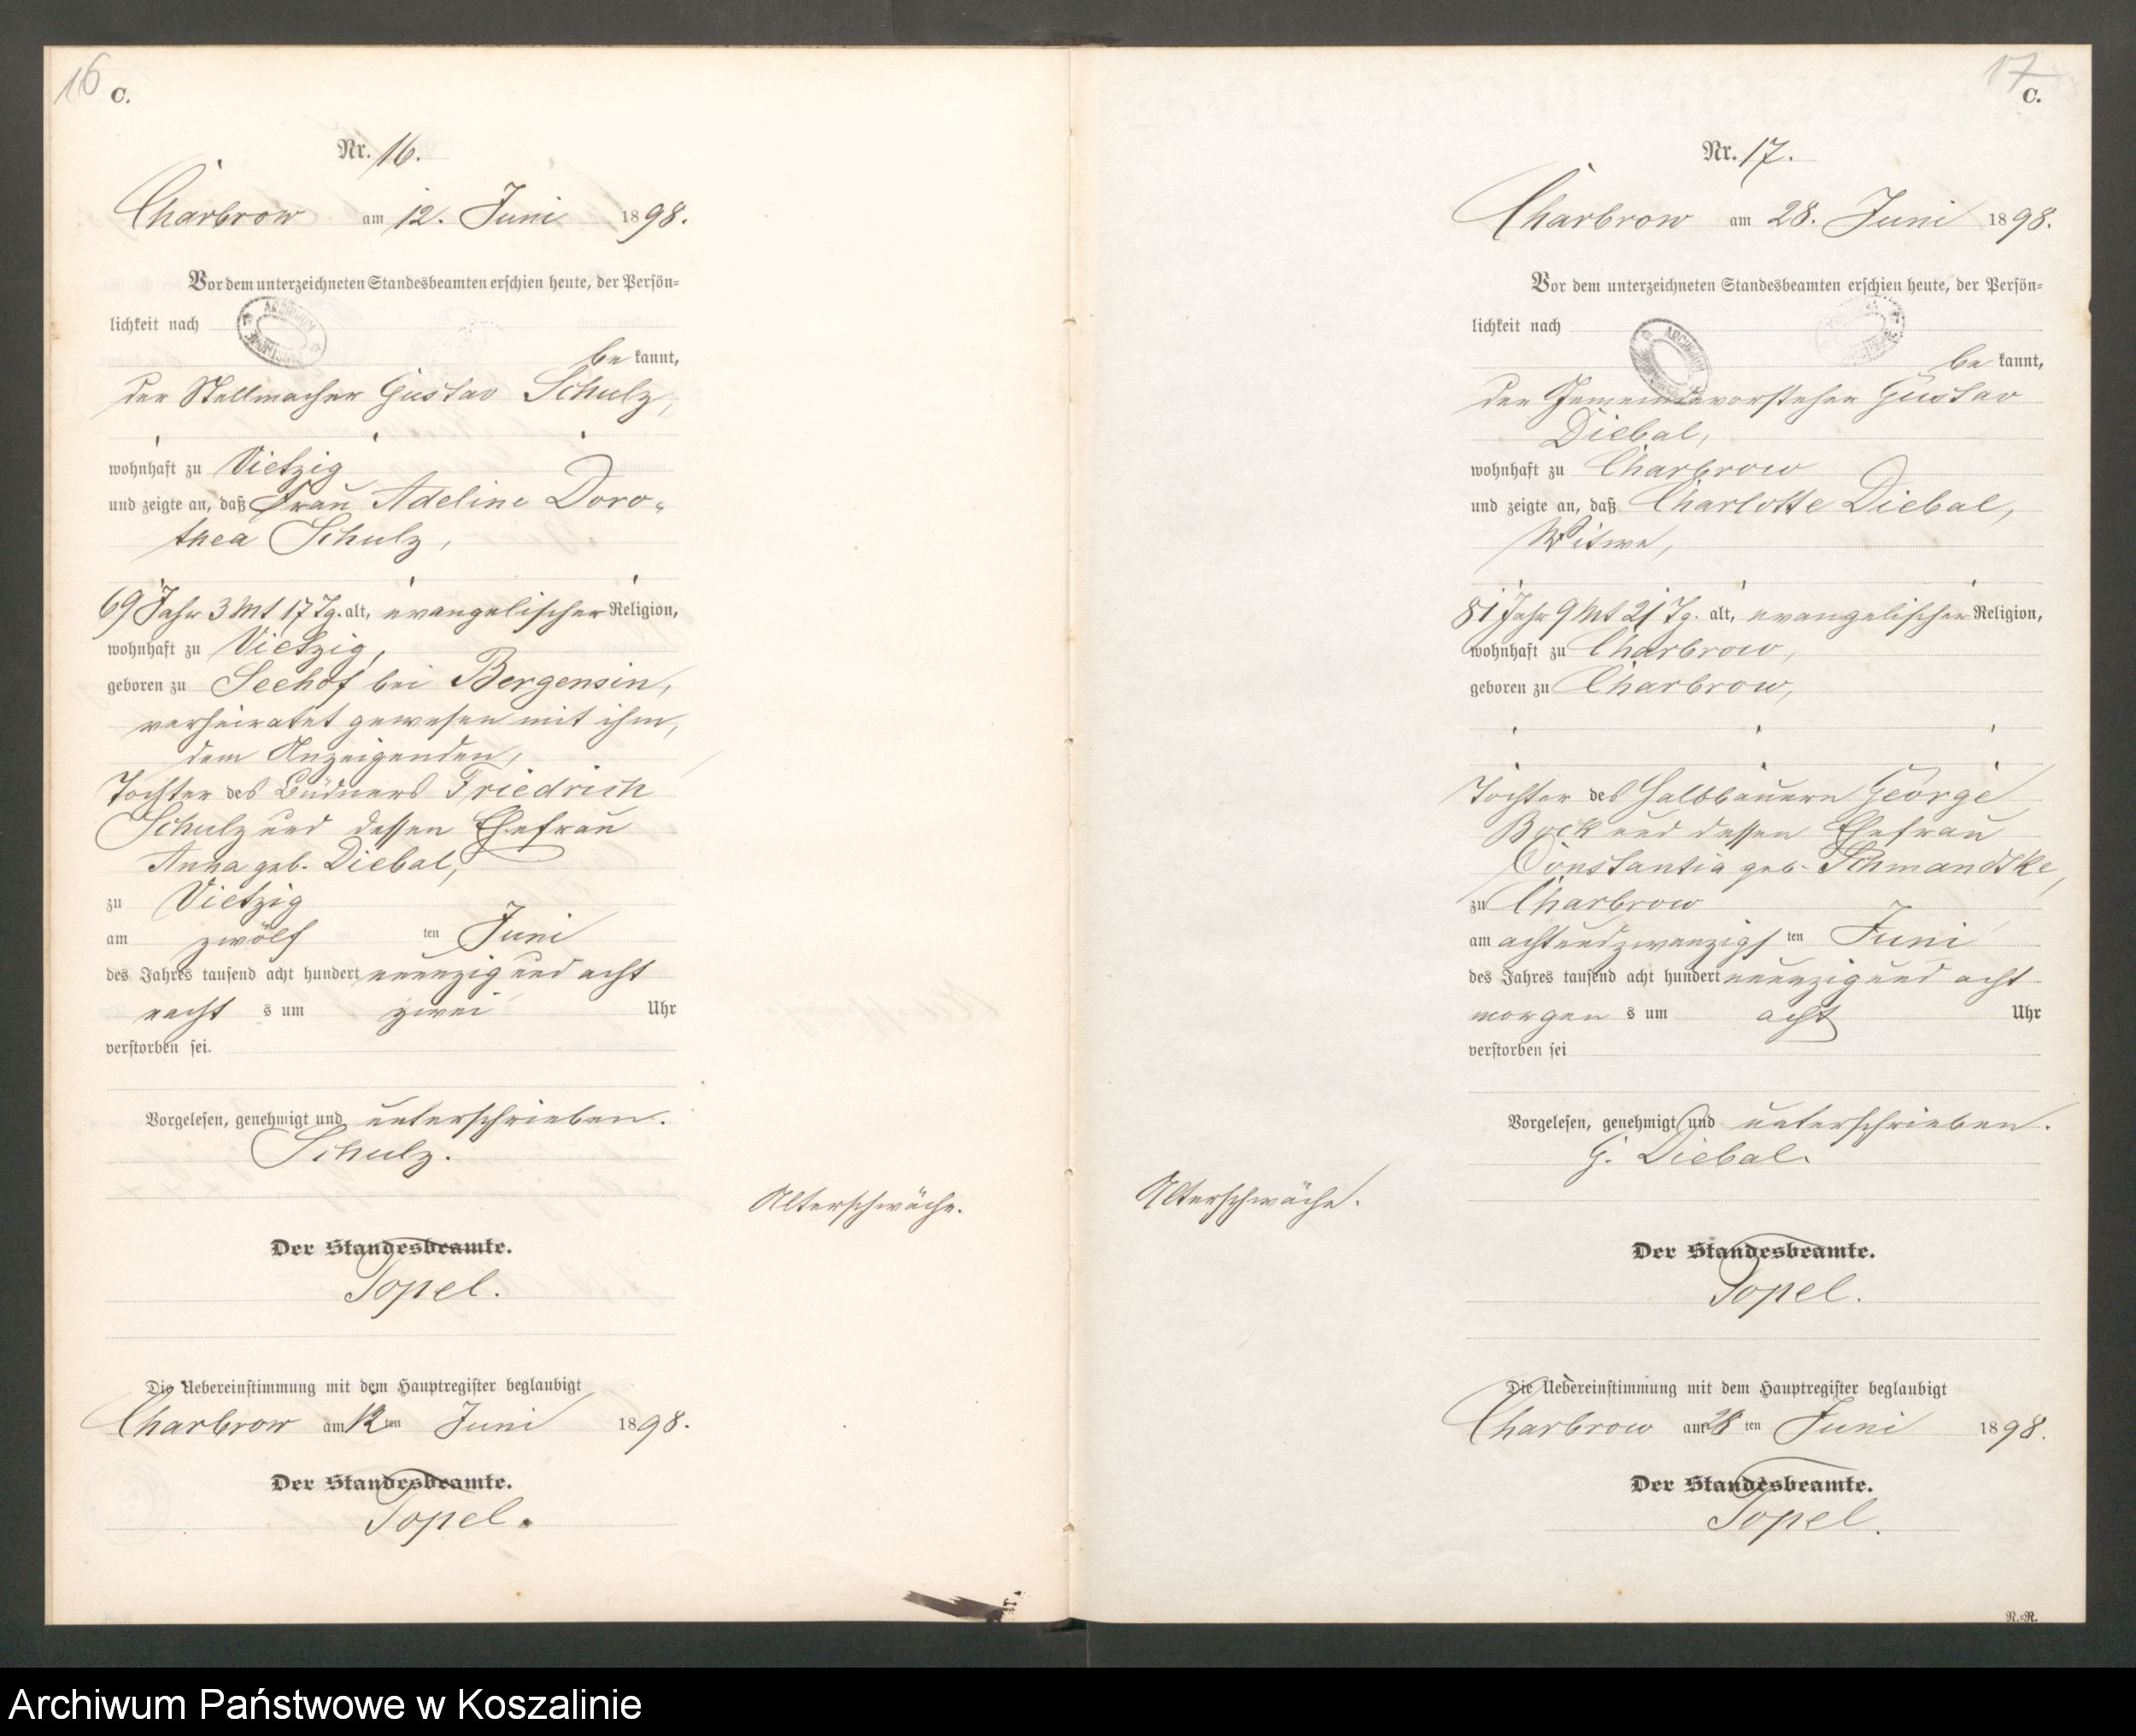 16
C.
Nr. 16.
Charbrow am 12. Juni 1898.
Vor dem unterzeichneten Standesbeamten erschien heute, der Persön-
lichkeit nach
be kannt,
der Stellmacher Gustav Schulz,
wohnhaft zu Vietzig
und zeigte an, daß Frau Adeline Doro-
thea Schulz,
69 Jahr 3 Mt 17 Tg. alt, evangelischer Religion,
wohnhaft zu Vietzig,
geboren zu Seehof bei Bergensin,
verheiratet gewesen mit ihm,
dem Anzeigenden,
Tochter des Büdners Friedrich
Schulz und dessen Ehefrau
Anna geb. Diebal,
zu Vietzig
am zwölf ten Juni
des Jahres tausend acht hundert neunzig und acht
nacht s um zwei Uhr
verstorben sei.
Vorgelesen, genehmigt und unterschrieben.
Schulz.
Alterschwäche.
Der Standesbeamte.
Topel.
Die Uebereinstimmung mit dem Hauptregister beglaubigt
Charbrow am 12 ten Juni 1898.
Der Standesbeamte.
Topel.
17
C.
Nr. 17.
Charbrow am 28. Juni 1898.
Vor dem unterzeichneten Standesbeamten erschien heute, der Persön-
lichkeit nach
be kannt,
der Gemeindevorsteher Gustav
Diebal,
wohnhaft zu Charbrow
und zeigte an, daß Charlotte Diebal,
Witwe,
81 Jahr 9 Mt 21 Tg. alt, evangelischer Religion,
wohnhaft zu Charbrow,
geboren zu Charbrow,
Tochter des Halbbauern George
Bock und dessen Ehefrau
Constantia geb. Schmandtke,
zu Charbrow
am achtundzwanzigs ten Juni
des Jahres tausend acht hundert neunzig und acht
morgen s um acht Uhr
verstorben sei
Vorgelesen, genehmigt und unterschrieben.
G. Diebal.
Alterschwäche.
Der Standesbeamte.
Topel.
Die Uebereinstimmung mit dem Hauptregister beglaubigt
Charbrow am 28 ten Juni 1898.
Der Standesbeamte.
Topel.
N.=R.
Archiwum Państwowe w Koszalinie